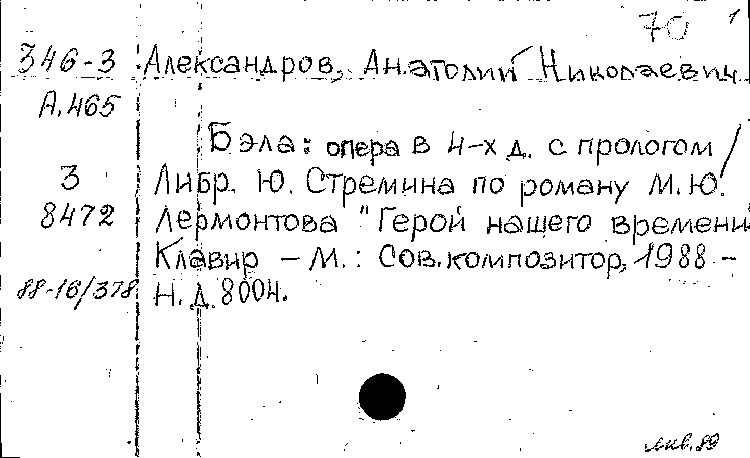 70 1
З46-3 Александров, Анатолий Николаевич
А.465
Бэла: опера в 4-х д. с прологом /
3 Либр. Ю. Стремина по роману М.Ю.
8472 Лермонтова "Герой нашего времени
Клавир - М.: Сов.композитор, 1988 -
88-16/378 Н.д. 8004.